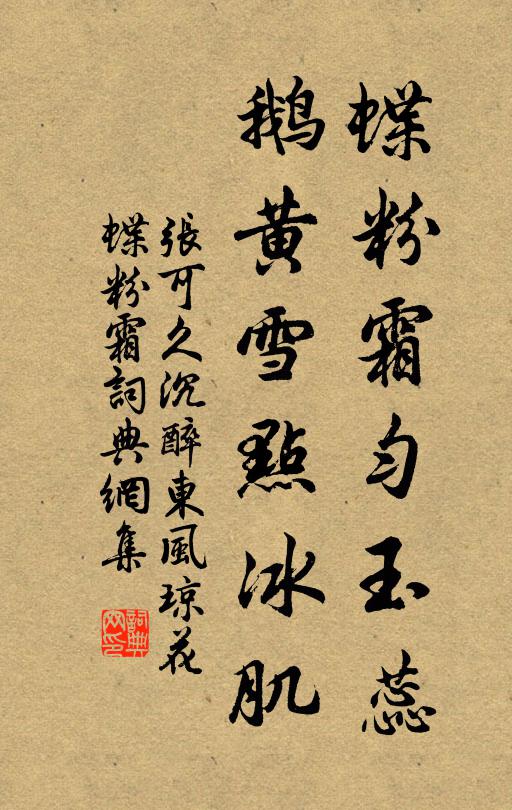 蝶粉霜勻玉蕊
鵝黃雪點冰肌
張可久沉醉東風琼花
蝶粉霜詞典網集
詞典網印